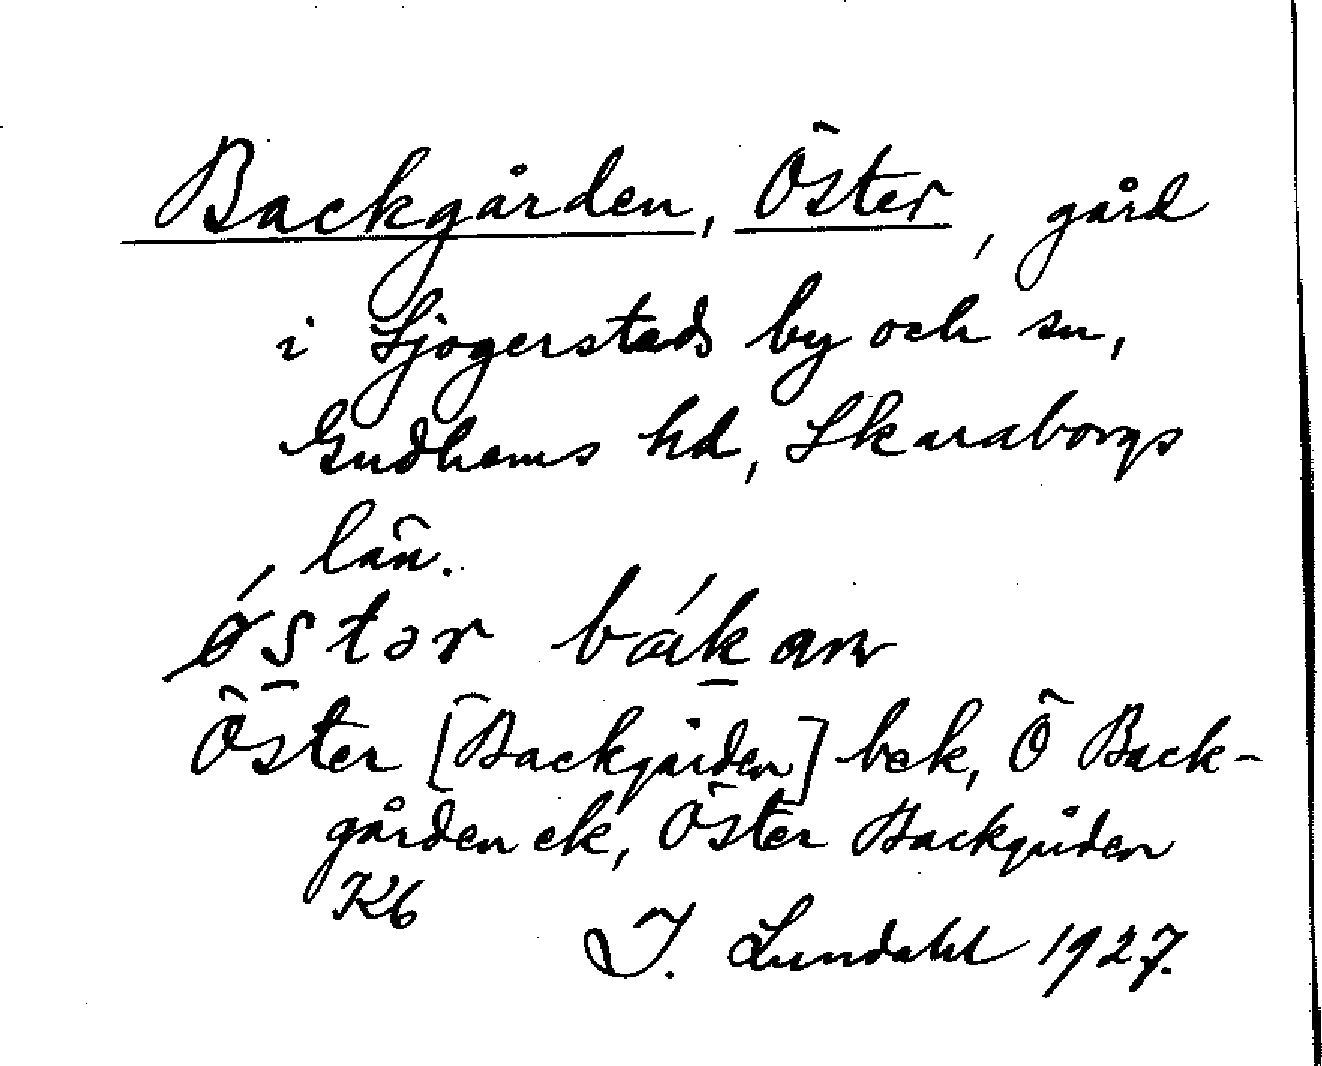 Backgården, Öster, gård
i Sjogerstads by och sn,
Gudhems hd, Skaraborgs
län.
ǿstər bákan
Öster [Backgården] bek, Ö Back-
gården ek, Öster Backgården
Kb
I. Lundahl 1927.